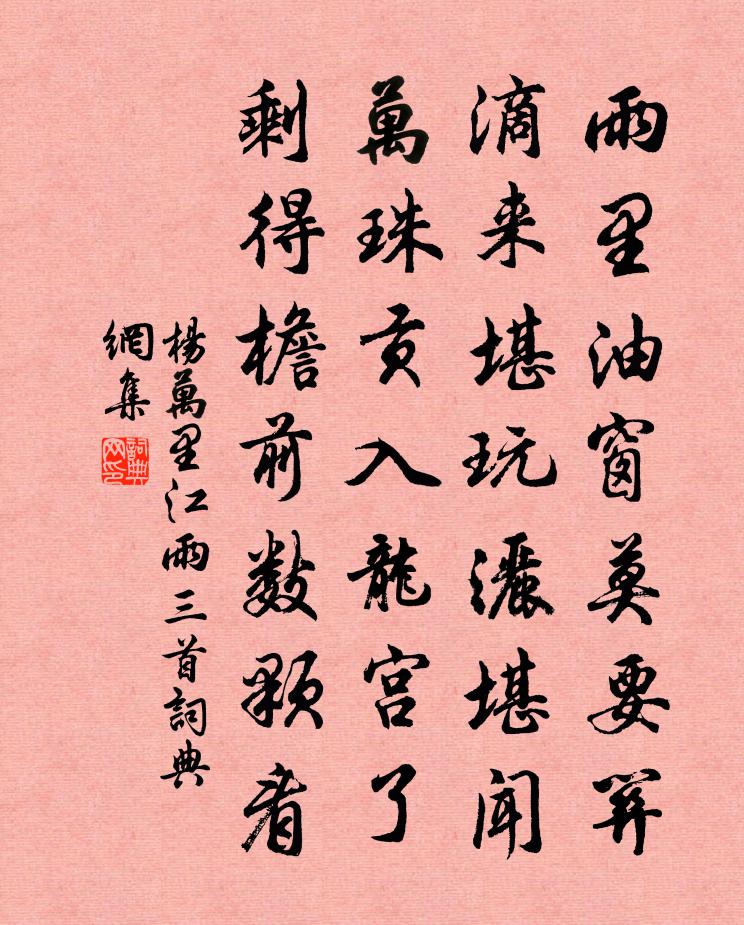 雨里油窗莫要关
滴来堪玩灑堪闻
萬珠贡入龍宫了
剩得檐前数颗看
楊萬里江雨三首詞典
網集
詞典
网印